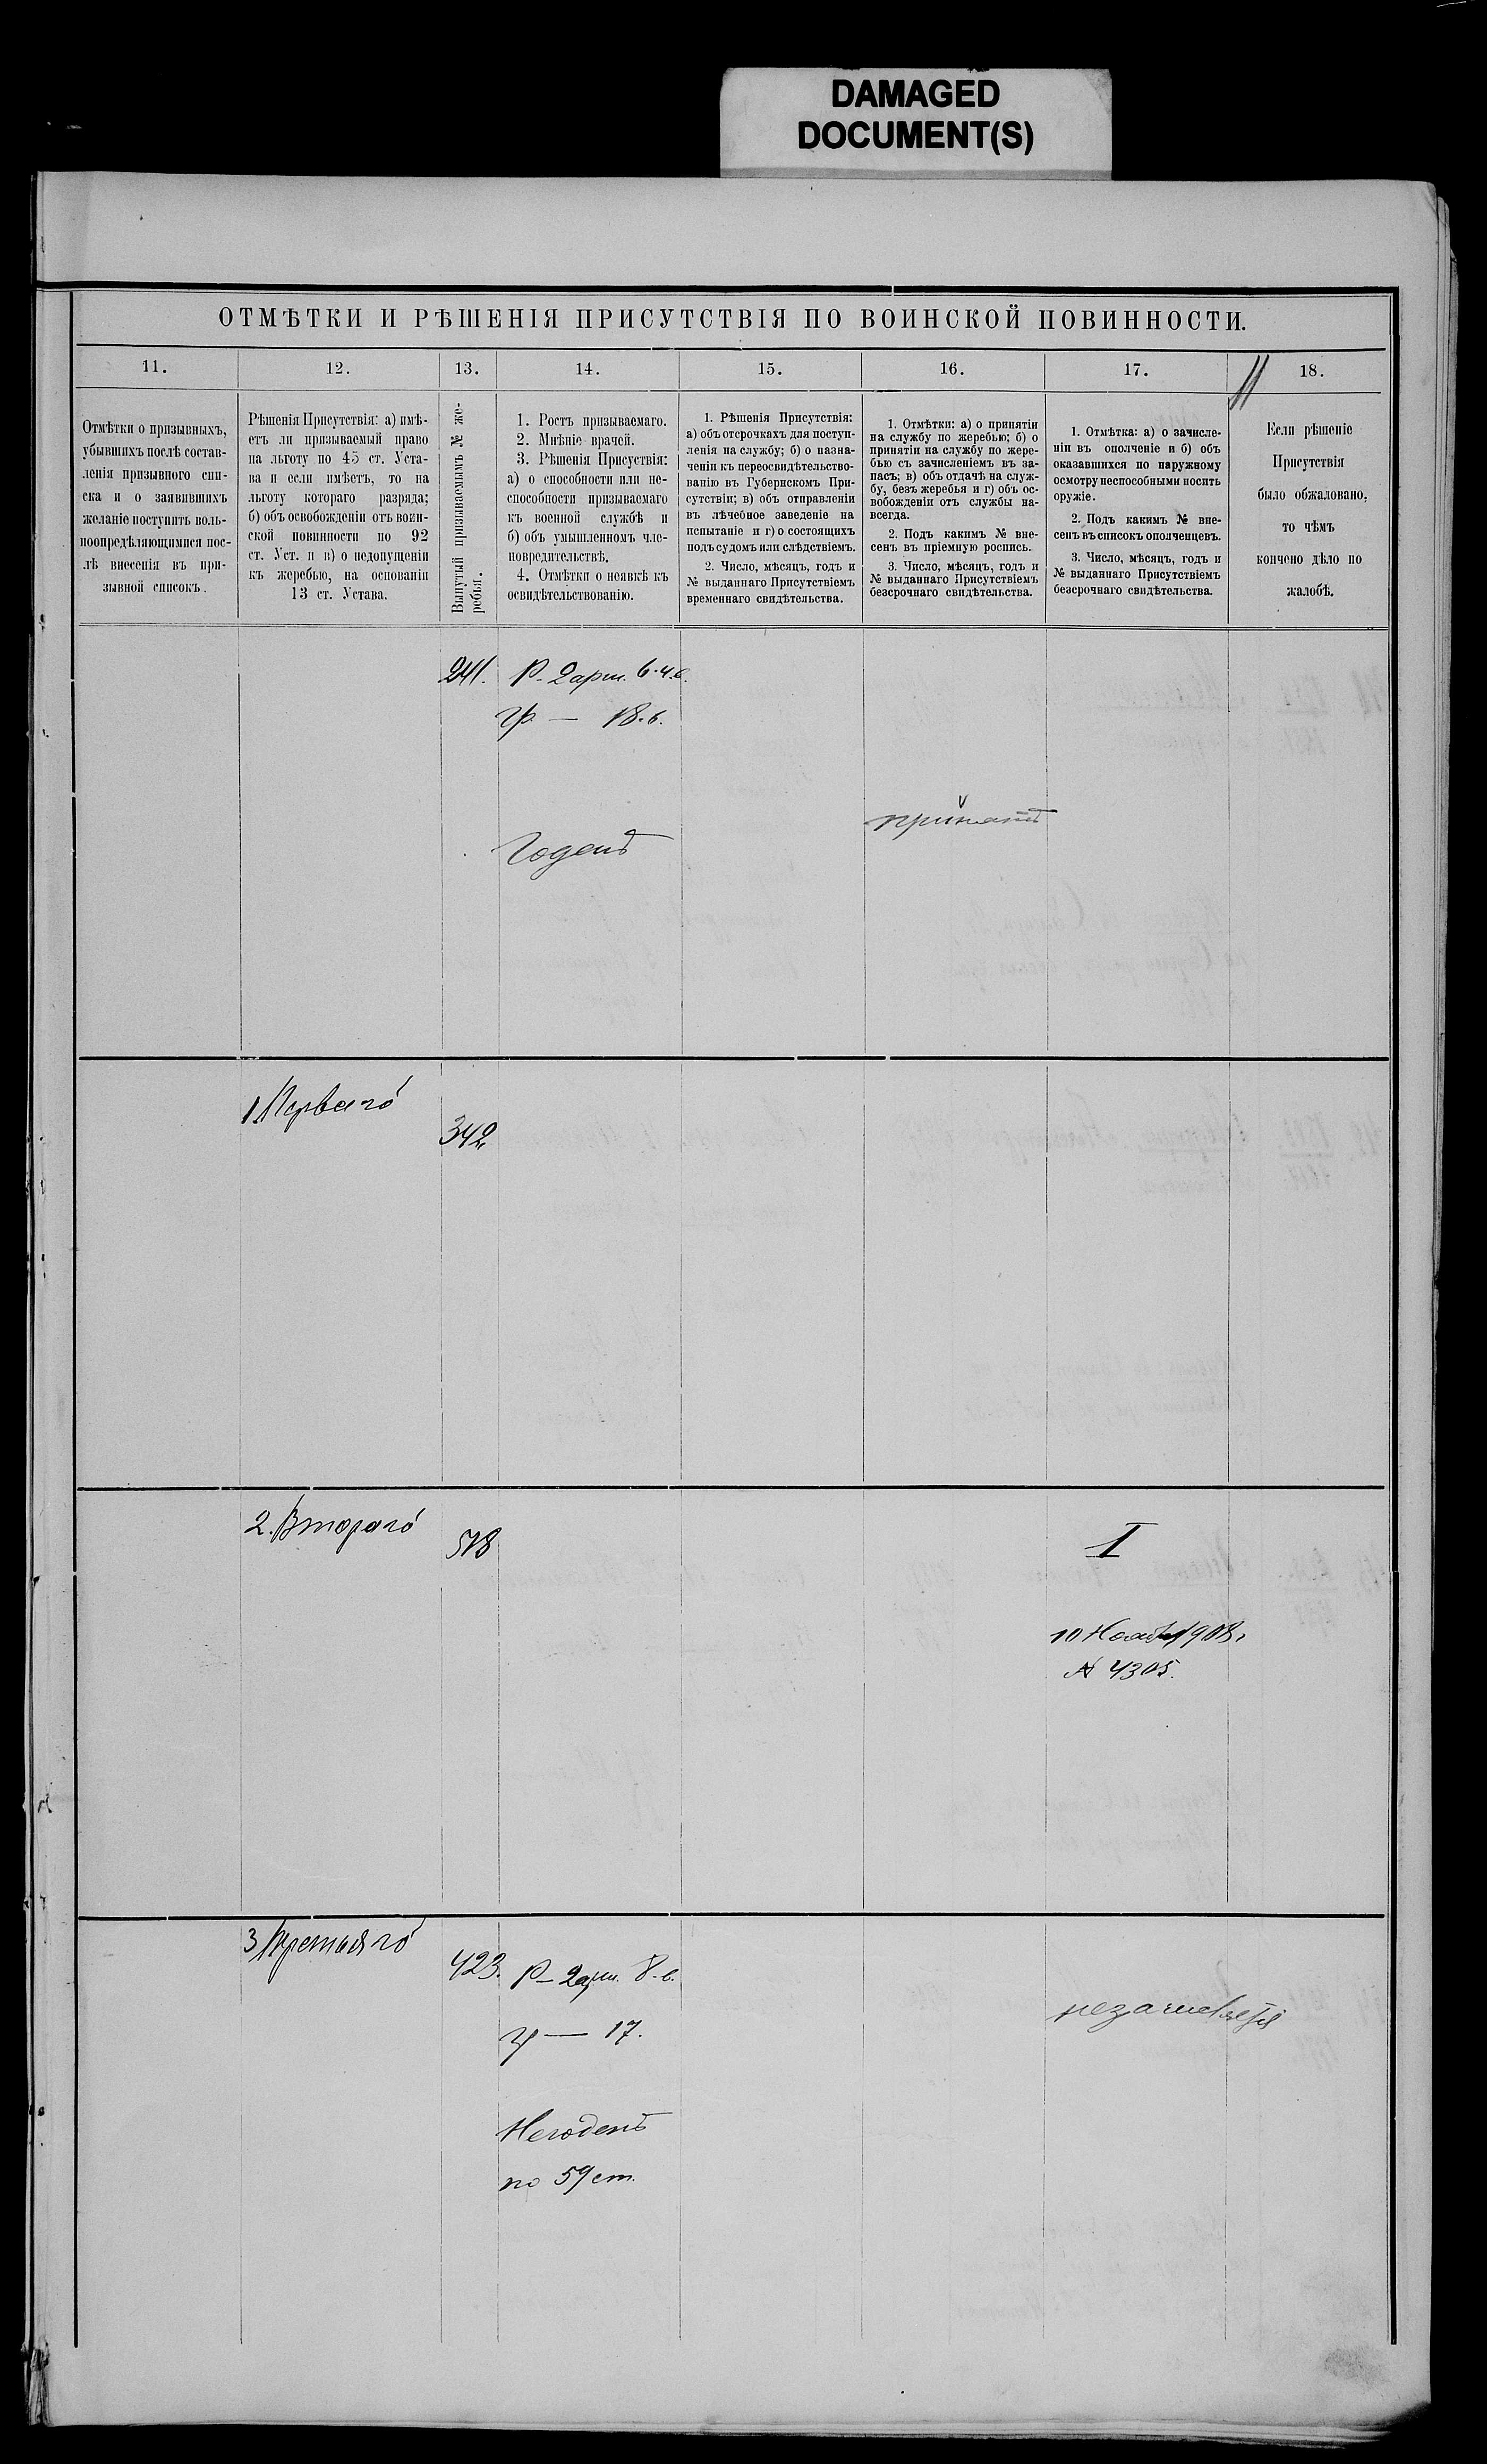 DAMAGED
DOCUMENT(S)
ОТМѢТКИ И РѢШЕНІЯ ПРИСУТСТВІЯ ПО ВОИНСКОЙ ПОВИННОСТИ.
11.
12.
13.
14.
15.
16.
17.
18.
Отмѣтки о призывныхъ,
убывшихъ послѣ состав-
ленія призывного спи-
ска и о заявившихъ
желаніе поступить воль-
ноопредѣляющимися пос-
лѣ внесенія въ при-
зывной списокъ.
Рѣшенія Присутствія: а) имѣ-
етъ ли призываемый право
на льготу по 45 ст. Уста-
ва и если имѣетъ, то на
льготу котораго разряда;
б) объ освобожденіи отъ воин-
ской повинности по 92
ст. Уст. и в) о недопущеніи
къ жеребью, на основаніи
13 ст. Устава.
Вынутый призываемымъ № же-
ребья.
1. Ростъ призываемаго.
2. Мнѣніе врачей.
3. Рѣшенія Присуствія:
а) о способности или не-
способности призываемаго
къ военной службѣ и
б) объ умышленномъ чле-
новредительствѣ.
4. Отмѣтки о неявкѣ къ
освидѣтельствованію.
1. Рѣшенія Присутствія:
а) объ отсрочкахъ для поступ-
ленія на службу; б) о назна-
ченіи къ переосвидѣтельство-
ванію въ Губернскомъ При-
сутствіи; в) объ отправленіи
въ лѣчебное заведеніе на
испытаніе и г) о состоящихъ
подъ судомъ или слѣдствіемъ.
2. Число, мѣсяцъ, годъ и
№ выданнаго Присутствіемъ
временнаго свидѣтельства.
1. Отмѣтки: а) о принятіи
на службу по жеребью; б) о
принятіи на службу по жере-
бью съ зачисленіемъ въ за-
пасъ; в) объ отдачѣ на служ-
бу, безъ жеребья и г) объ ос-
вобожденіи отъ службы на-
всегда.
2. Подъ какимъ № вне-
сенъ въ пріемную роспись.
3. Число, мѣсяцъ, годъ и
№ выданнаго Присутствіемъ
безсрочнаго свидѣтельства.
1. Отмѣтка: а) о зачисле-
ніи въ ополченіе и б) объ
оказавшихся по наружному
осмотру неспособными носить
оружіе.
2. Подъ какимъ № вне-
сенъ въ списокъ ополченцевъ.
3. Число, мѣсяцъ, годъ и
№ выданнаго Присутствіемъ
безсрочнаго свидѣтельства.
Если рѣшеніе
Присутствія
было обжаловано,
то чѣмъ
кончено дѣло по
жалобѣ.
241.
Р. 2 арш. 6.ч.в.
гр — 18.в.
Годенъ
принятъ
1. Перваго
342
2. Втораго
518
I
10 Ноября 1908 г
№ 4305.
3 Третьяго
423.
Р— 2 арш. 8.в.
гр — 17.
Негоденъ
по 59 ст.